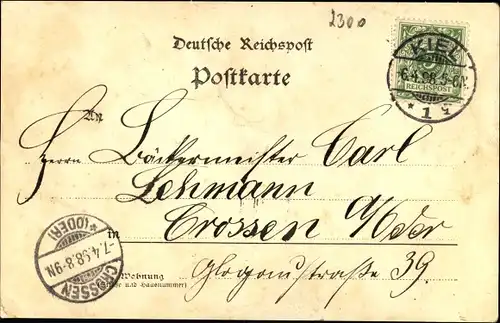 2300
Deutsche Reichspost
Postkarte
KIEL
6.4.98.5-6N.
* 1 q
REICHSPOST
An
Herrn Bäckermeister Carl
Lehmann
Crossen a/Oder
in
Wohnung
(Straße und Hausnummer)
Glogaustraße 39.
CROSSEN
-7.4.98.8-9N
*(ODER)